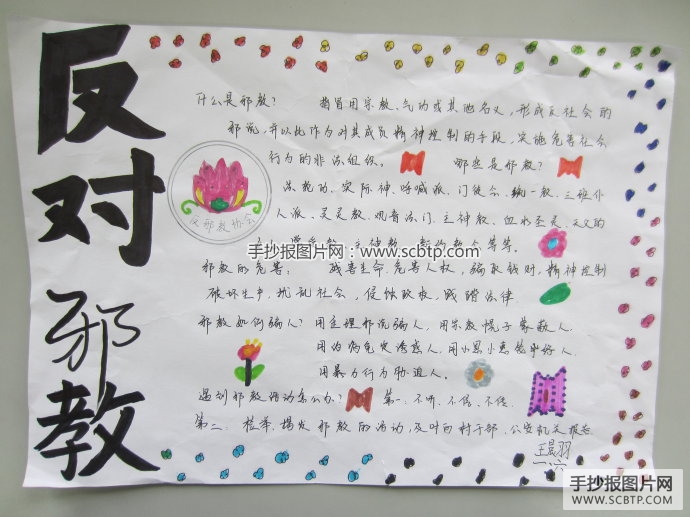 反对邪教
什么是邪教? 指冒用宗教、气功或其他名义,形成反社会的
邪说,并以此作为对其成员精神控制的手段,实施危害社会
行为的非法组织。 哪些是邪教?
法轮功、实际神、呼喊派、门徒会、统一教、三班仆
人派、灵灵教、观音法门、主神教、血水圣灵、天父的
反邪教协会
手抄报图片网:www.scbtp.com
邪教的危害: 残害生命、危害人权,骗取钱财,精神控制
破坏生产,扰乱社会,侵蚀政权,践踏法律
邪教如何骗人? 用歪理邪说骗人,用宗教幌子蒙蔽人.
用治病免灾诱惑人,用小恩小惠能哄好人.
用暴力行为胁迫人.
遇到邪教活动怎么办? 第一:不听、不信、不传.
第二:检举、揭发邪教的活动,及时向村干部、公安机关报告
一、六
手抄报图片网
WWW.SCBTP.COM